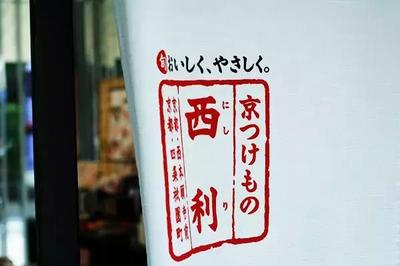 旬おいしく、やさしく。
京つけもの
西利
にしり
京都・西本願寺前
京都・四条祇園町